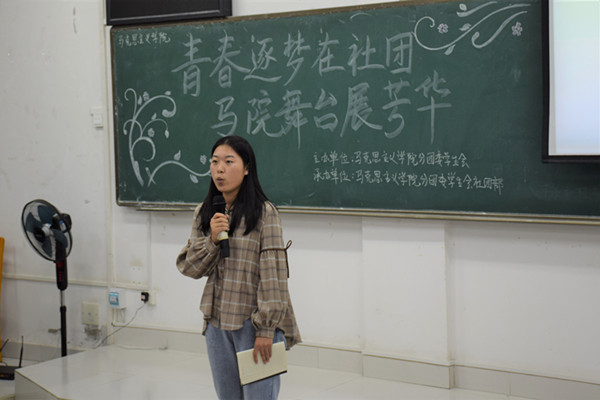 马克思主义学院
青春逐梦在社团
马院舞台展芳华
主办单位：马克思主义学院分团委学生会
承办单位：马克思主义学院分团委学生会社团部